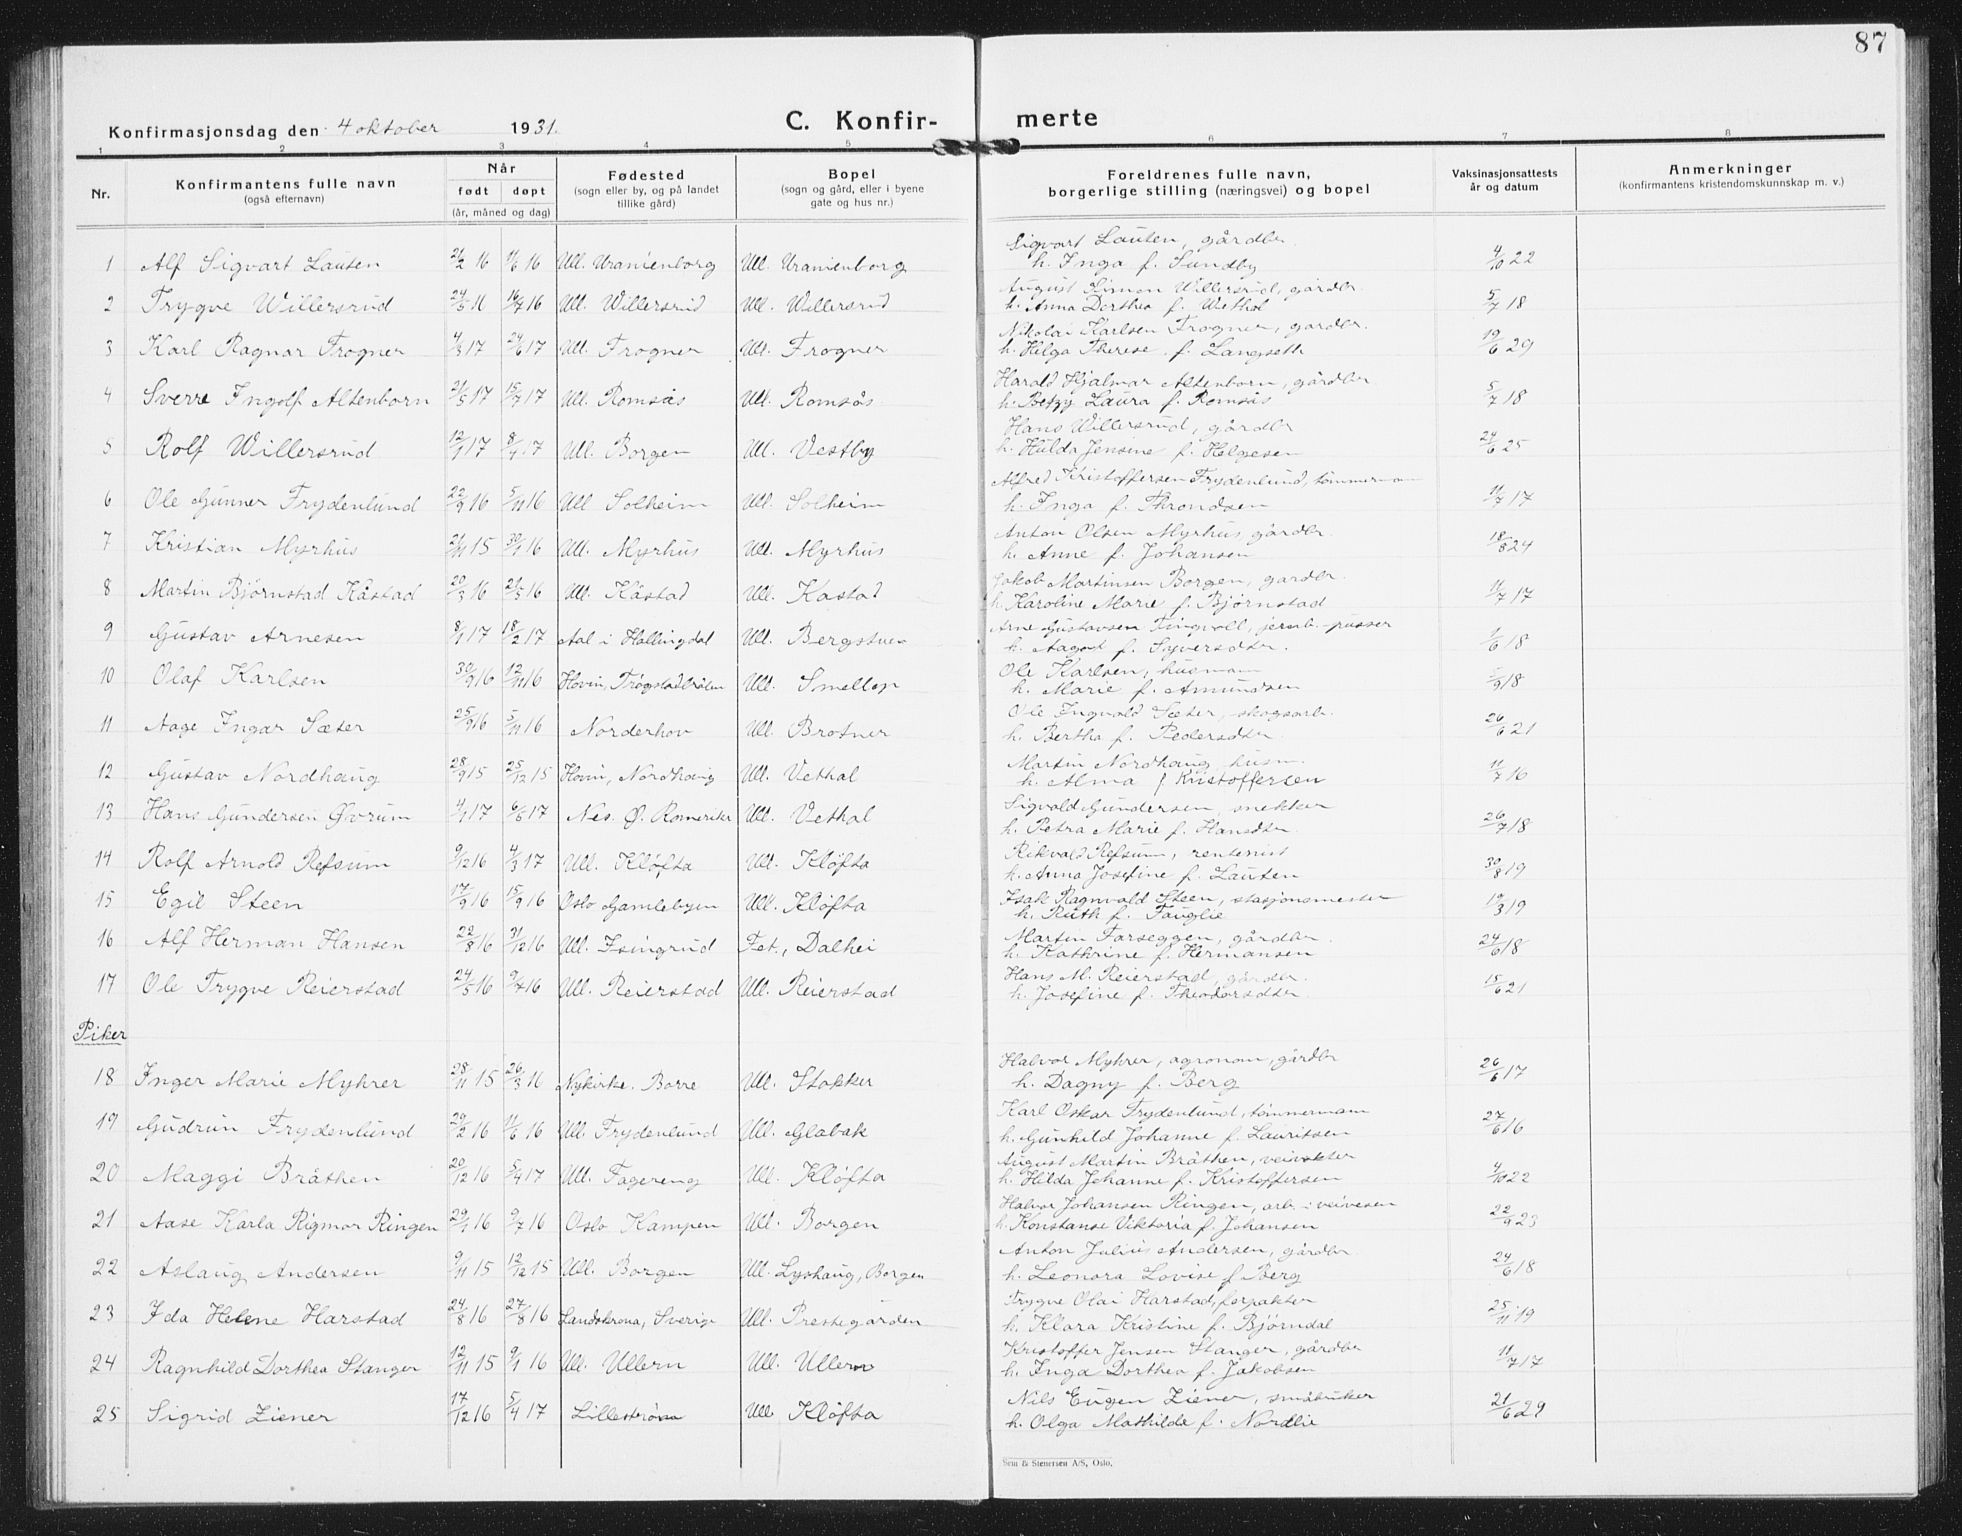 87
Konfirmasjonsdag den 4 oktober 1931. C. Konfir- merte
1 2 3 4 5 6 7 8
Nr. Konfirmantens fulle navn (også efternavn) Når født døpt (år, måned og dag) Fødested (sogn eller by, og på landet tillike gård) Bopel (sogn og gård, eller i byene gate og hus nr.) Foreldrenes fulle navn, borgerlige stilling (næringsvei) og bopel Vaksinasjonsattests år og datum Anmerkninger (konfirmantens kristendomskunnskap m. v.)
1 Alf Sigvart Lauten 21/2 16 1/6 16 Ull. Uranienborg Ull. Uranienborg Sigvart Lauten, gårdbr.
h. Inga f. Sundby 4/10 22
2 Trygve Willersrud 24/5 16 16/7 16 Ull. Willersrud Ull. Willersrud August Simon Willersrud, gårdbr.
h. Anna Dorthea f. Wethal 5/7 18
3 Karl Ragnar Frogner 4/3 17 24/6 17 Ull. Frogner Ull. Frogner Nikolai Karlsen Frogner, gardbr.
h. Helga Therese f. Langseth 19/6 29
4 Sverre Ingolf Altenborn 21/5 17 15/7 17 Ull. Romsås Ull. Romsås Harald Hjalmar Altenborn, gårdbr
h. Betzy Laura f. Romsås 5/7 18
5 Rolf Willersrud 12/1 17 8/4 17 Ull. Borgen Ull. Vestby Hans Willersrud, gårdbr
h. Hulda Jensine f. Helgesen 24/6 25
6 Ole Gunner Frydenlund 22/9 16 5/11 16 Ull Solheim Ull. Solheim Alfred Kristoffersen Frydenlund, tömmermann
h. Inga f. Throndsen 11/7 17
7 Kristian Myrhus 21/11 15 30/1 16 Ull. Myrhus Ull. Myrhus Anton Olsen Myrhus, gårdbr.
h. Anne f. Johansen 18/8 24
8 Martin Bjørnstad Kåstad 20/3 16 21/5 16 Ull. Kåstad Ull. Kastad Jakob Martinsen Borgen, gardbr.
h. Karoline Marie f. Bjørnstad 11/7 17
9 Gustav Arnesen 8/1 17 18/2 17 Aal i Hallingdal Ull. Bergstuen Arne Gustavsen Tingvoll, jernb.-pusser
h. Aagot f. Syversdtr. 1/6 18
10 Olaf Karlsen 30/9 16 12/11 16 Hovin, Ull. Ole Karlsen, husmann
h. Marie f. Amundsen /9 18
11 Aage Ingar Sæter 25/9 16 5/11 16 Norderhov Ull. Brotner Ole Ingvald Sæter, skogsarb.
h. Bertha f. Pedersdtr. 26/6 21
12 Gustav Nordhaug 28/9 15 25/12 15 Hovin, Nordhaug Ull. Vethal Martin Nordhaug, husm.
h. Alma f. Kristoffersen 11/7 16
13 Hans Gundersen Øvrum 4/1 17 6/5 17 Nes. Ø. Romerike Ull. Vethal Sigvald Gundersen, snekker
h. Petra Marie f. Hansdtr. 26/7 18
14 Rolf Arnold Refsum 9/12 16 4/3 17 Ull. Kløfta Ull. Kløfta Rikvald Refsum, rentenist
h. Anna Josefine f. Lauten 30/8 19
15 Egil Steen 17/9 16 15/9 16 Oslo Gamlebyen Ull. Kløfta Isak Ragnvald Steen, stasjonsmester
h. Ruth f. Fauglie 19/3 19
16 Alf Herman Hansen 22/8 16 31/12 16 Ull. Isingrud Fet., Dalhei Martin Farseggen, gårdbr.
h. Kathrine f. Hermansen 24/6 18
17 Ole Trygve Reierstad 24/5 16 9/7 16 Ull. Reierstad Ull. Reierstad Hans M. Reierstad, gårdbr.
h. Josefine f. Theodorsdtr. 15/6 21
Piker
18 Inger Marie Myhrer 28/11 15 26/3 16 Nykirke. Borre Ull. Stakker Halvor Myhrer, agronom, gårdbr
h. Dagny f. Berg 26/6 17
19 Gudrun Frydenlund 29/2 16 11/6 16 Ull. Frydenlund Ull. Glabak Karl Oskar Frydenlund, tömmermann
h. Gunhild Johanne f. Lauritsen 27/6 16
20 Maggi Bråthen 20/12 16 5/4 17 Ull. Fagereng Ull. Kløfta August Martin Bråthen, veivokter
h. Hilda Johanne f. Kristoffersen 4/10 22
21 Aase Karla Rigmor Ringen 29/1 16 9/7 16 Oslo Kampen Ull. Borgen Halvor Johansen Ringen, arb. i veivesen
h. Konstanse Viktoria f. Johansen 22/9 23
22 Aslaug Andersen 9/11 15 12/12 15 Ull. Borgen Ull. Lyshaug, Borgen Anton Julius Andersen, gårdbr.
h. Leonora Lovise f Berg 24/6 18
23 Ida Helene Harstad 24/8 16 27/8 16 Landskrona, Sverige Ull. Prestegården Trygve Olai Harstad, forpakter
h. Klara Kristine f. Björndal 25/11 19
24 Ragnhild Dorthea Stanger 12/11 15 9/1 16 Ull. Ullern Ull. Ullern Kristoffer Jensen Stanger, gårdbr
h. Inga Dorthea f. Jakobsen 11/7 17
25 Sigrid Ziener 17/12 16 5/4 17 Lillestrøm Ull Kløfta Nils Eugen Ziener, småbruker
h. Olga Mathilde f. Nordlie 21/6 29
Sem & Stenersen A/S, Oslo.